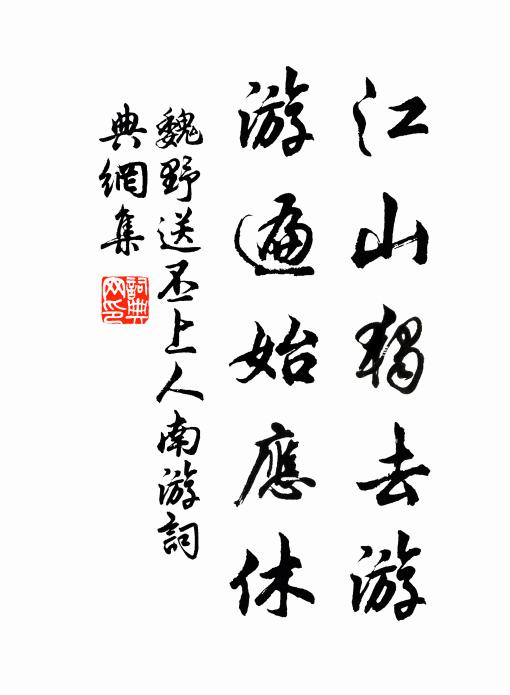 江山獨去游
游遍始應休
魏野送丕上人南游詞
典網集
詞典網印